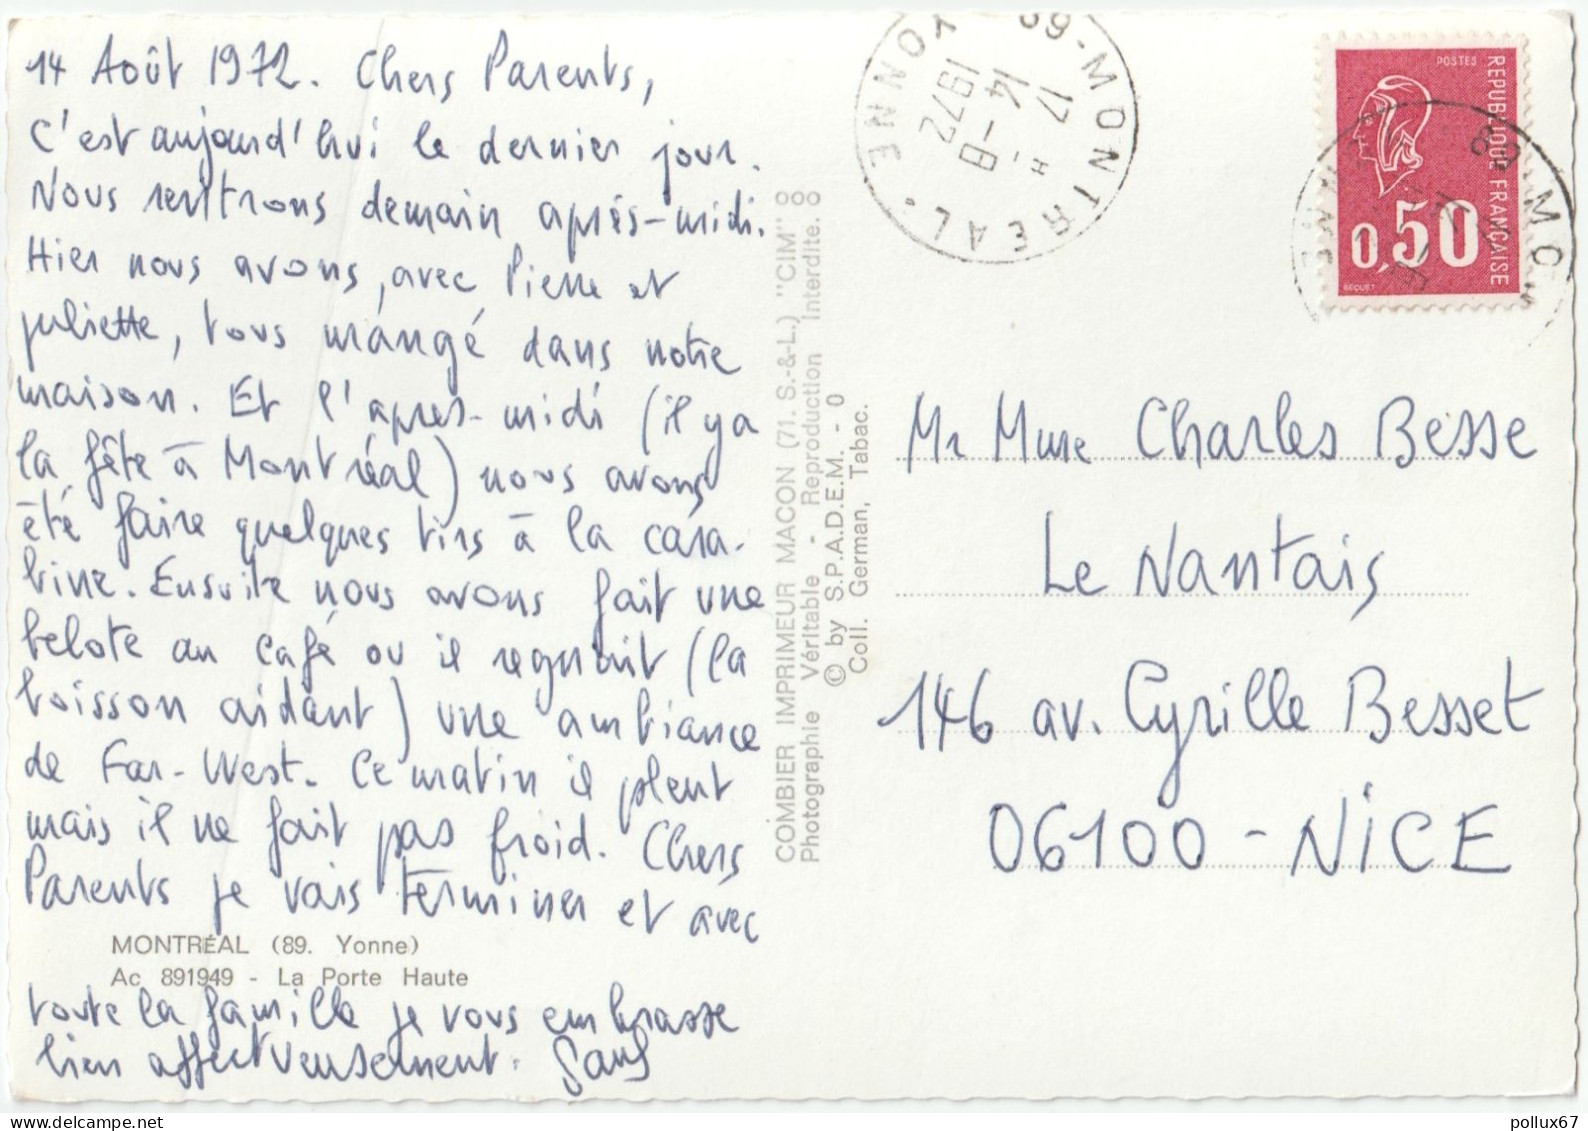 14 Août 1972. Chers Parents,
C'est aujourd'hui le dernier jour.
Nous rentrons demain après-midi.
Hier nous avons, avec Pierre et
juliette, tous mangé dans notre
maison. Et l'apres-midi (il y a
la fête à Montréal) nous avons
été faire quelques tirs à la cara-
bine. Ensuite nous avons fait une
belote au café ou il regnait (la
boisson aidant) une ambiance
de Far-West. Ce matin il pleut
mais il ne fait pas froid. Chers
Parents je vais terminer et avec
MONTRÉAL (89. Yonne)
Ac 891949 - La Porte Haute
toute la famille je vous embrasse
bien affectueusement.
COMBIER IMPRIMEUR MACON (71. S.-&-L.) "CIM"
Photographie Véritable - Reproduction Interdite.
© by S.P.A.D.E.M. - 0
Coll. German, Tabac.
89-MONTREAL
YONNE
17 H
14-8
1972
POSTES
REPUBLIQUE FRANÇAISE
0,50
BEQUET
89-MO
Mr Mme Charles Besse
Le Nantais
146 av. Cyrille Besset
06100-NiCE
pollux67